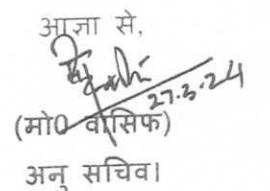 आज्ञा से,
27.3.24
(मो0 वासिफ)
अनु सचिव।